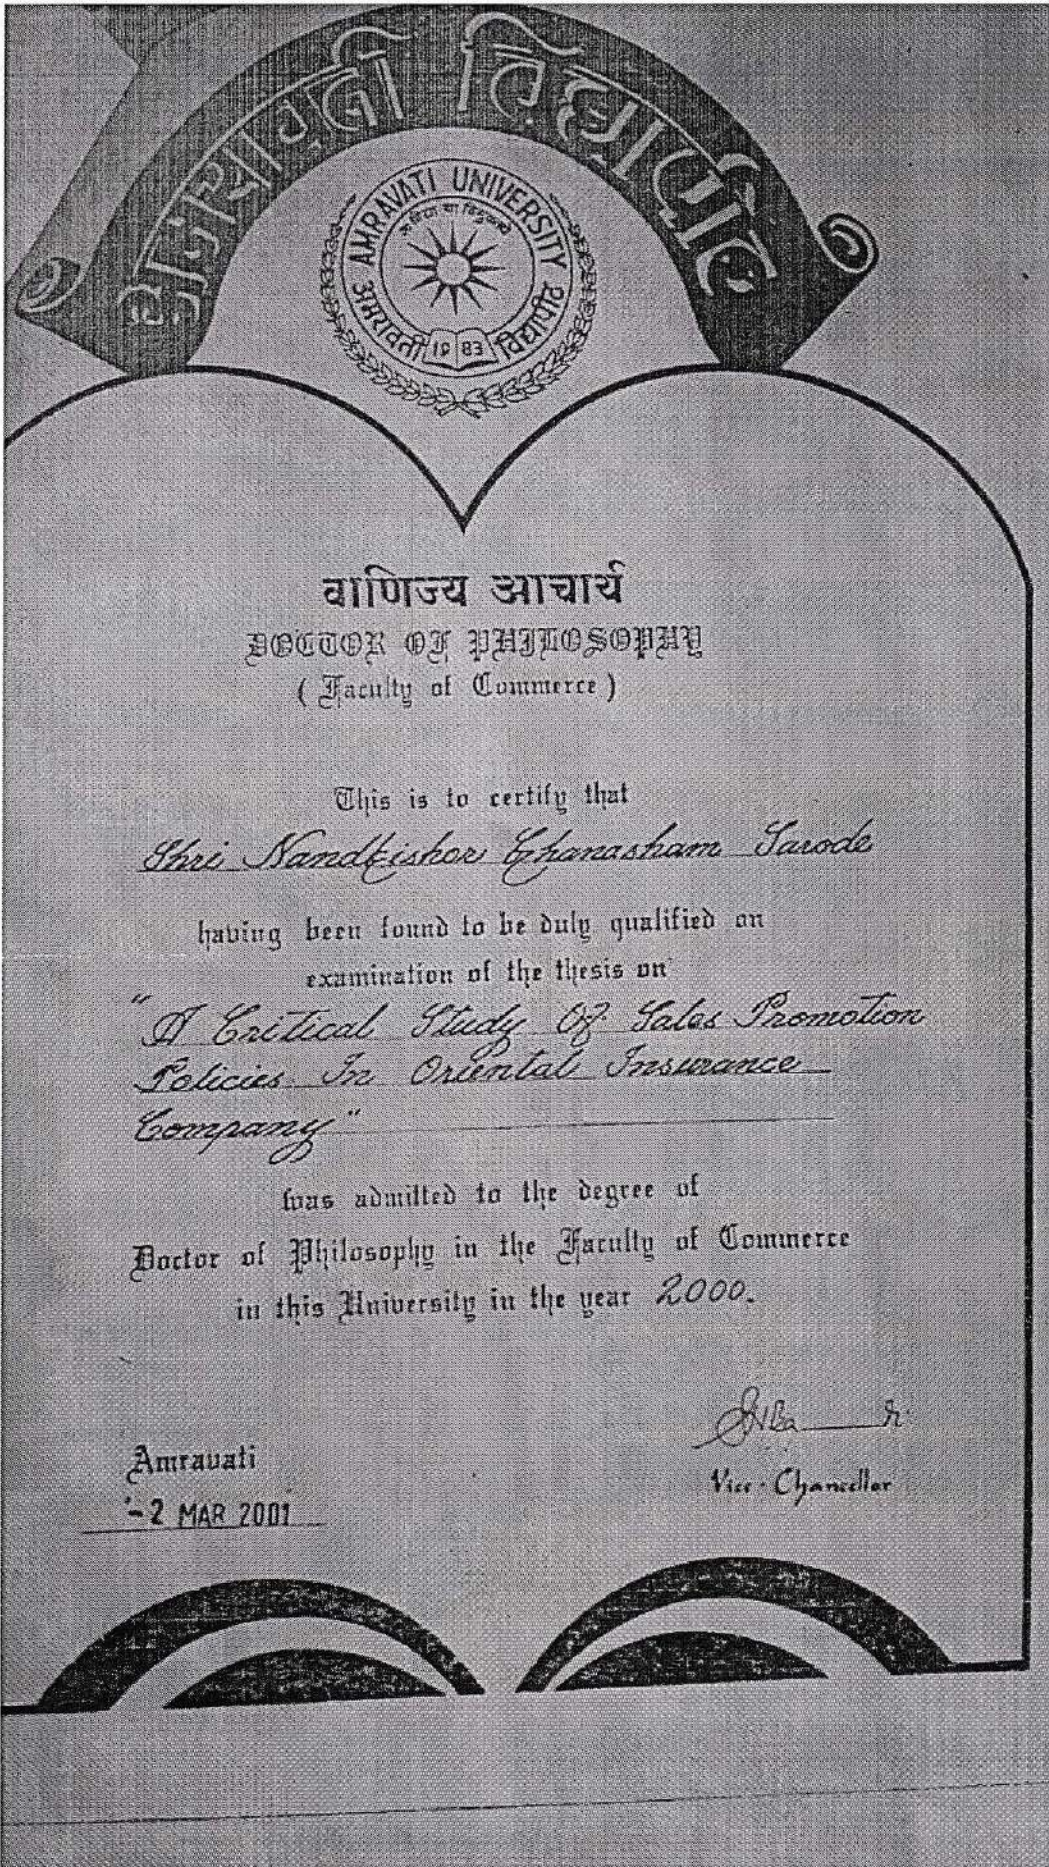 अमरावती विद्यापीठ
AMRAVATI UNIVERSITY
अमरावती 1983 विद्यापीठ
वाणिज्य आचार्य
DOCTOR OF PHILOSOPHY
( Faculty of Commerce )
This is to certify that
Shri Nandkishor Ghanasham Sarode
having been found to be duly qualified on
examination of the thesis on
"A Critical Study Of Sales Promotion
Policies In Oriental Insurance
Company"
was admitted to the degree of
Doctor of Philosophy in the Faculty of Commerce
in this University in the year 2000.
Amravati
-2 MAR 2001
Vice-Chancellor